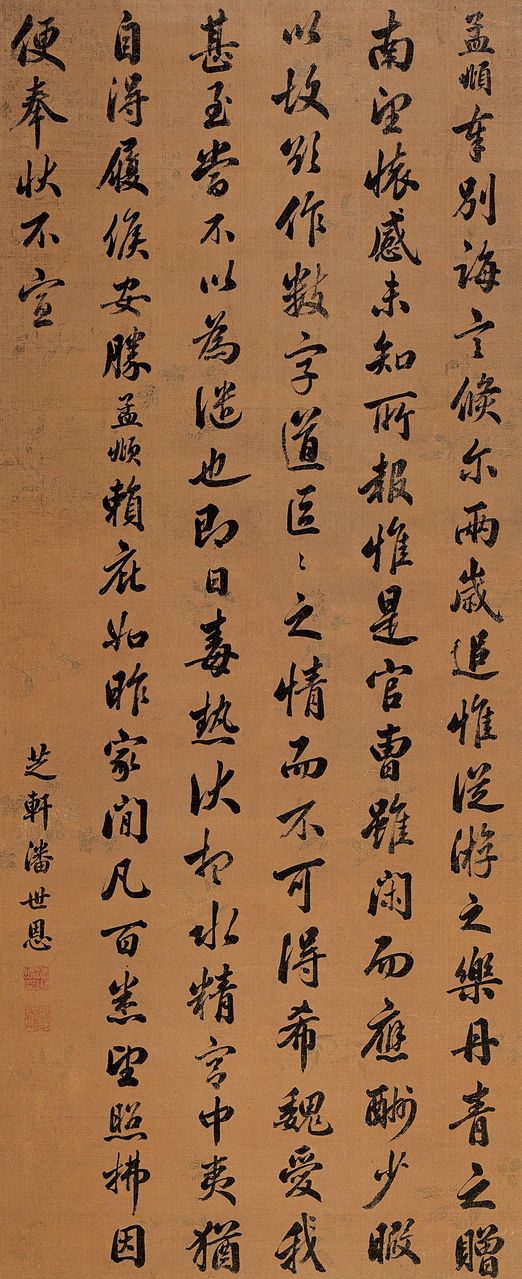 孟頫奉別誨言倏尔兩歲追惟從游之樂丹青之贈
南望懐感未知所報惟是官曹雖閑而應酬少暇
以故欲作數字道区〻之情而不可得希魏愛我
甚至當不以為譴也即日毒熱伏想水精宮中夷猶
自得履候安勝孟頫賴庇如昨家間凡百悉望照拂因
便奉状不宣
芝軒潘世恩